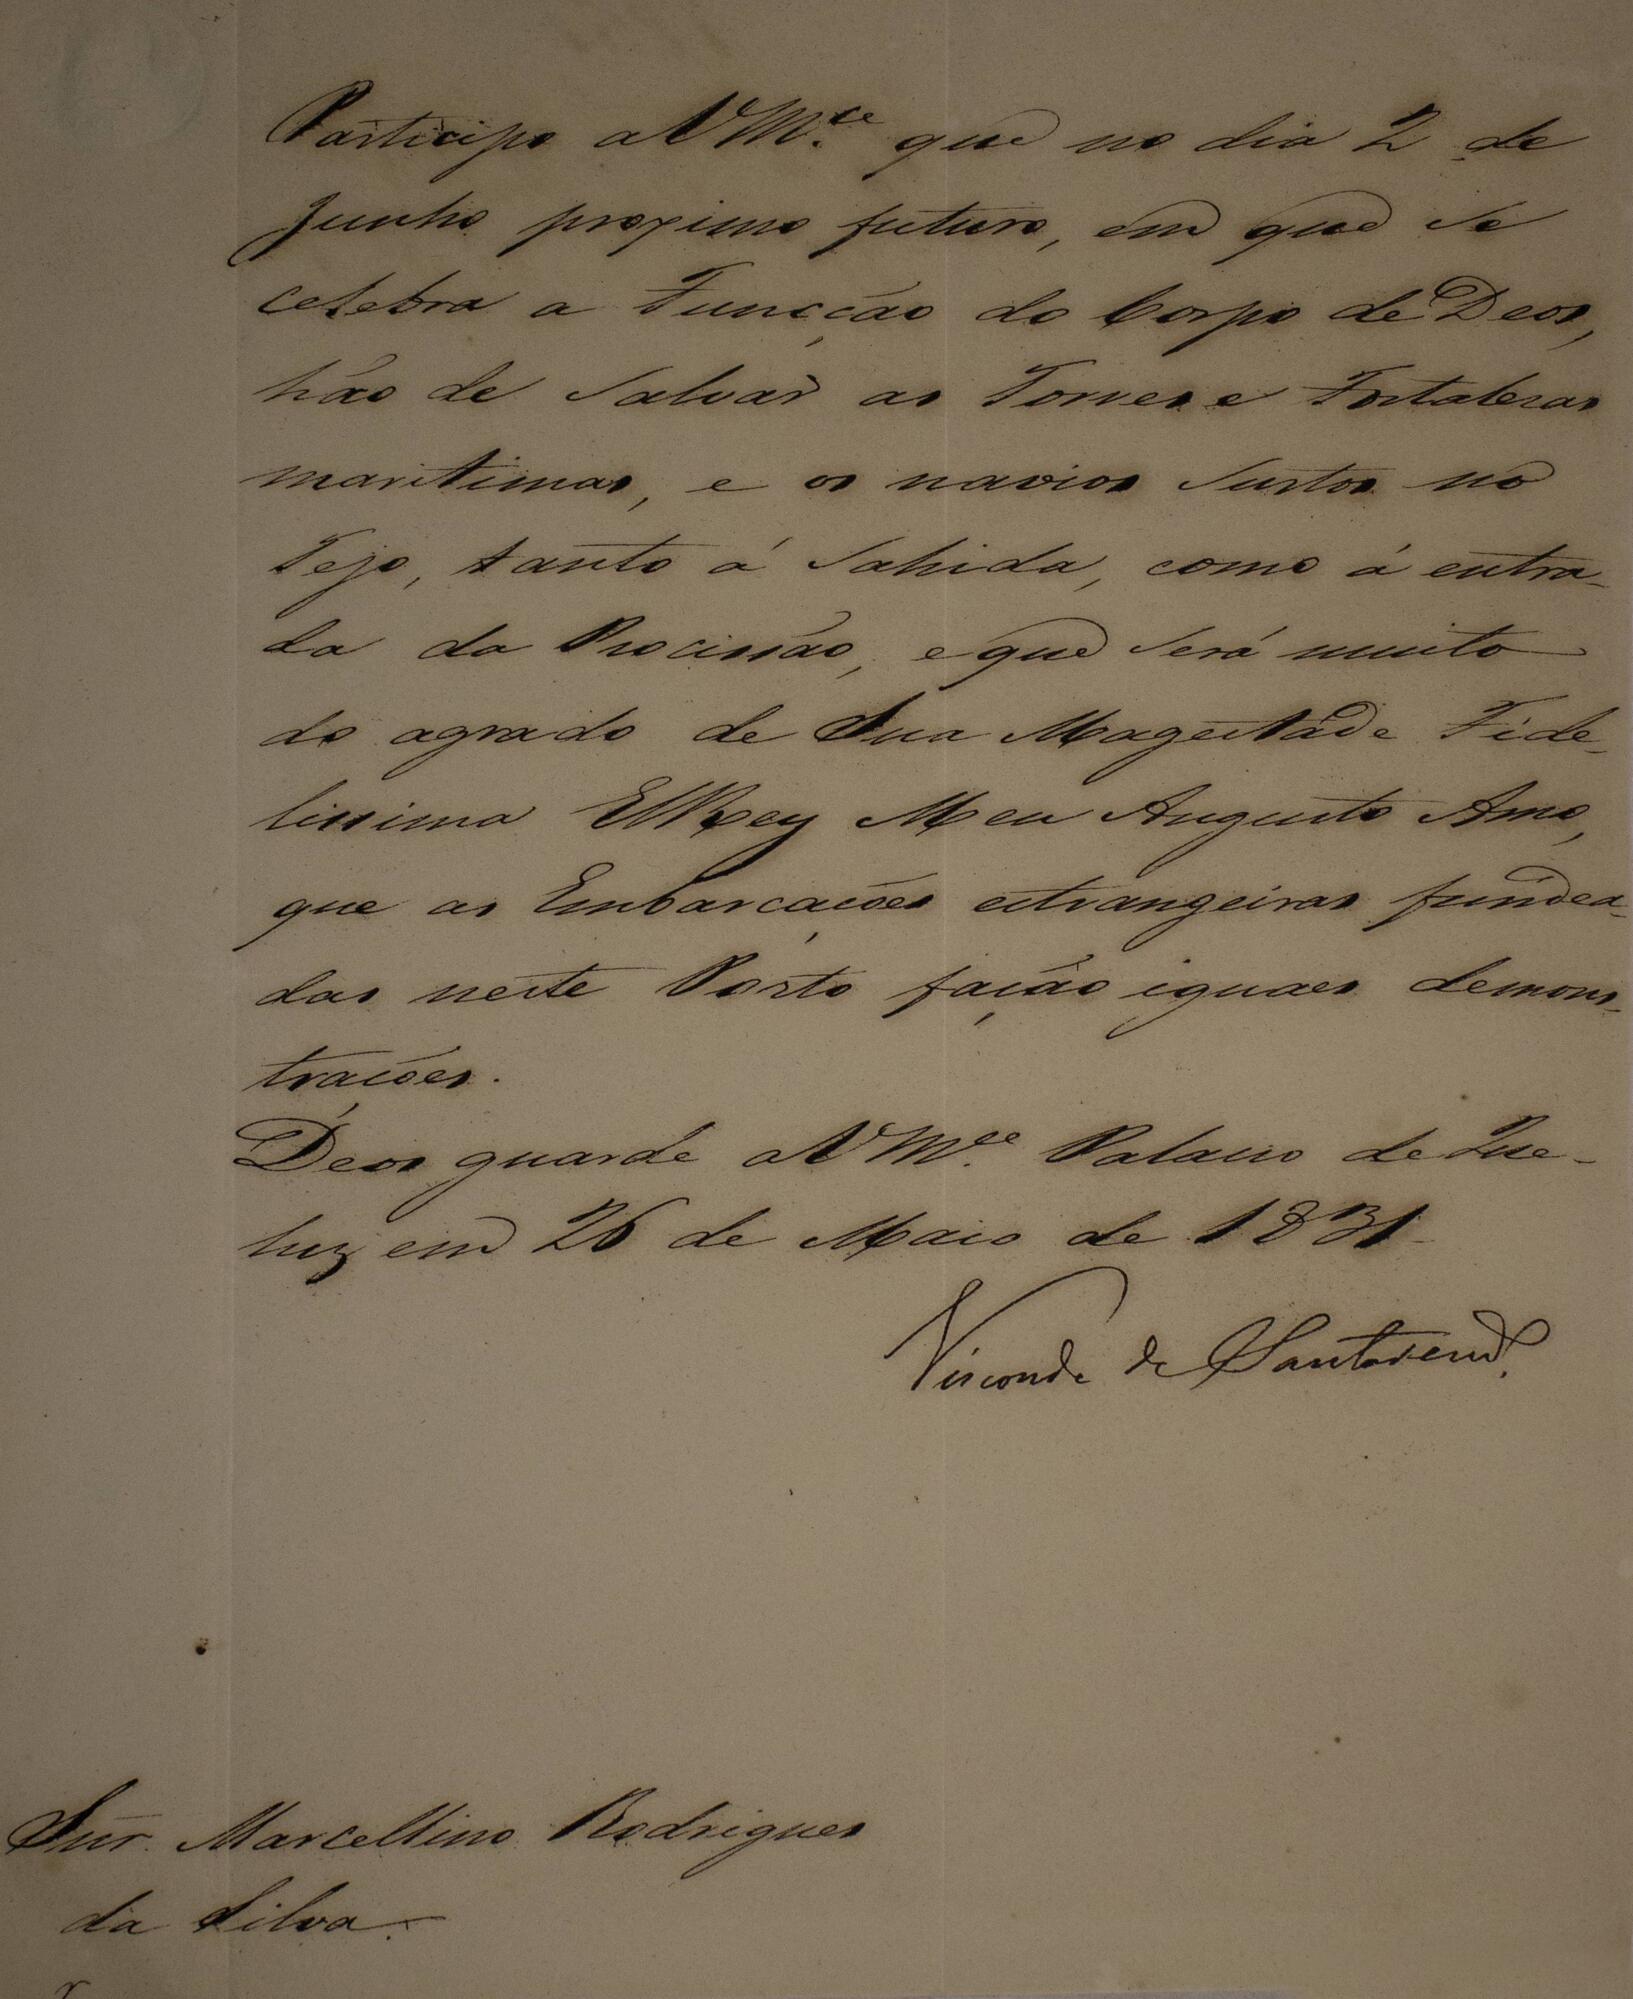 Participo a V M.ce que no dia 2 de
Junho proximo futuro, em que se
celebra a Funcção do Corpo de Deos,
hão de salvar as Torres e Fortalezas
maritimas, e os navios surtos no
Tejo, tanto á sahida, como á entra-
da da Procissão, e que será muito
do agrado de Sua Magestade Fide-
lissima ElRey Meu Augusto Amo,
que as Embarcações estrangeiras fundea-
das neste Porto fação iguaes demons-
trações.
Deos guarde a V M.ce Palacio de Que-
luz em 26 de Maio de 1831
Visconde de Santarem.
Snr. Marcellino Rodrigues
da Silva.